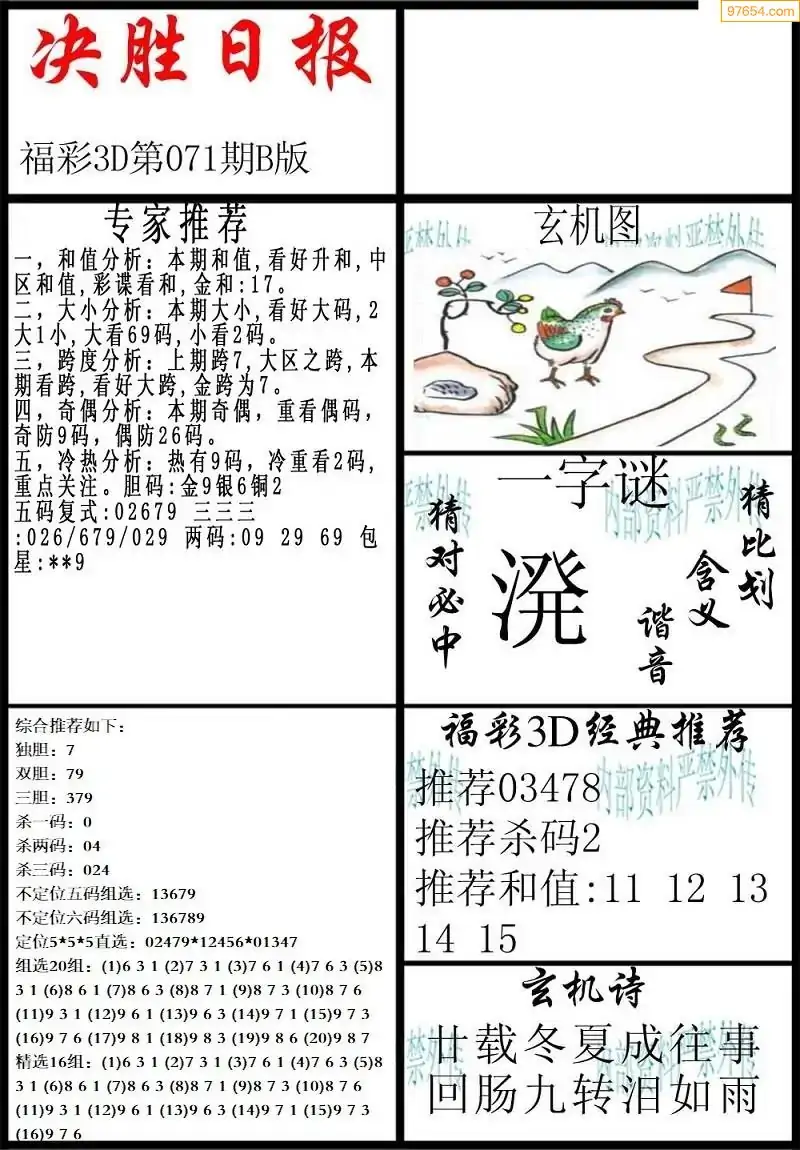 97654.com
决胜日报
福彩3D第071期B版
专家推荐
一，和值分析：本期和值,看好升和,中
区和值,彩谍看和,金和:17。
二，大小分析：本期大小,看好大码,2
大1小,大看69码,小看2码。
三，跨度分析：上期跨7,大区之跨,本
期看跨,看好大跨,金跨为7。
四，奇偶分析：本期奇偶，重看偶码，
奇防9码，偶防26码。
五，冷热分析：热有9码，冷重看2码,
重点关注。胆码:金9银6铜2
五码复式:02679 三三三
:026/679/029 两码:09 29 69 包
星:**9
玄机图
一字谜
猜对必中
溌
猜比划
含义
谐音
综合推荐如下:
独胆：7
双胆：79
三胆：379
杀一码：0
杀两码：04
杀三码：024
不定位五码组选：13679
不定位六码组选：136789
定位5*5*5直选：02479*12456*01347
组选20组：(1)6 3 1 (2)7 3 1 (3)7 6 1 (4)7 6 3 (5)8
3 1 (6)8 6 1 (7)8 6 3 (8)8 7 1 (9)8 7 3 (10)8 7 6
(11)9 3 1 (12)9 6 1 (13)9 6 3 (14)9 7 1 (15)9 7 3
(16)9 7 6 (17)9 8 1 (18)9 8 3 (19)9 8 6 (20)9 8 7
精选16组：(1)6 3 1 (2)7 3 1 (3)7 6 1 (4)7 6 3 (5)8
3 1 (6)8 6 1 (7)8 6 3 (8)8 7 1 (9)8 7 3 (10)8 7 6
(11)9 3 1 (12)9 6 1 (13)9 6 3 (14)9 7 1 (15)9 7 3
(16)9 7 6
福彩3D经典推荐
内部资料严禁外传
推荐03478
推荐杀码2
推荐和值:11 12 13
14 15
玄机诗
廿载冬夏成往事
回肠九转泪如雨